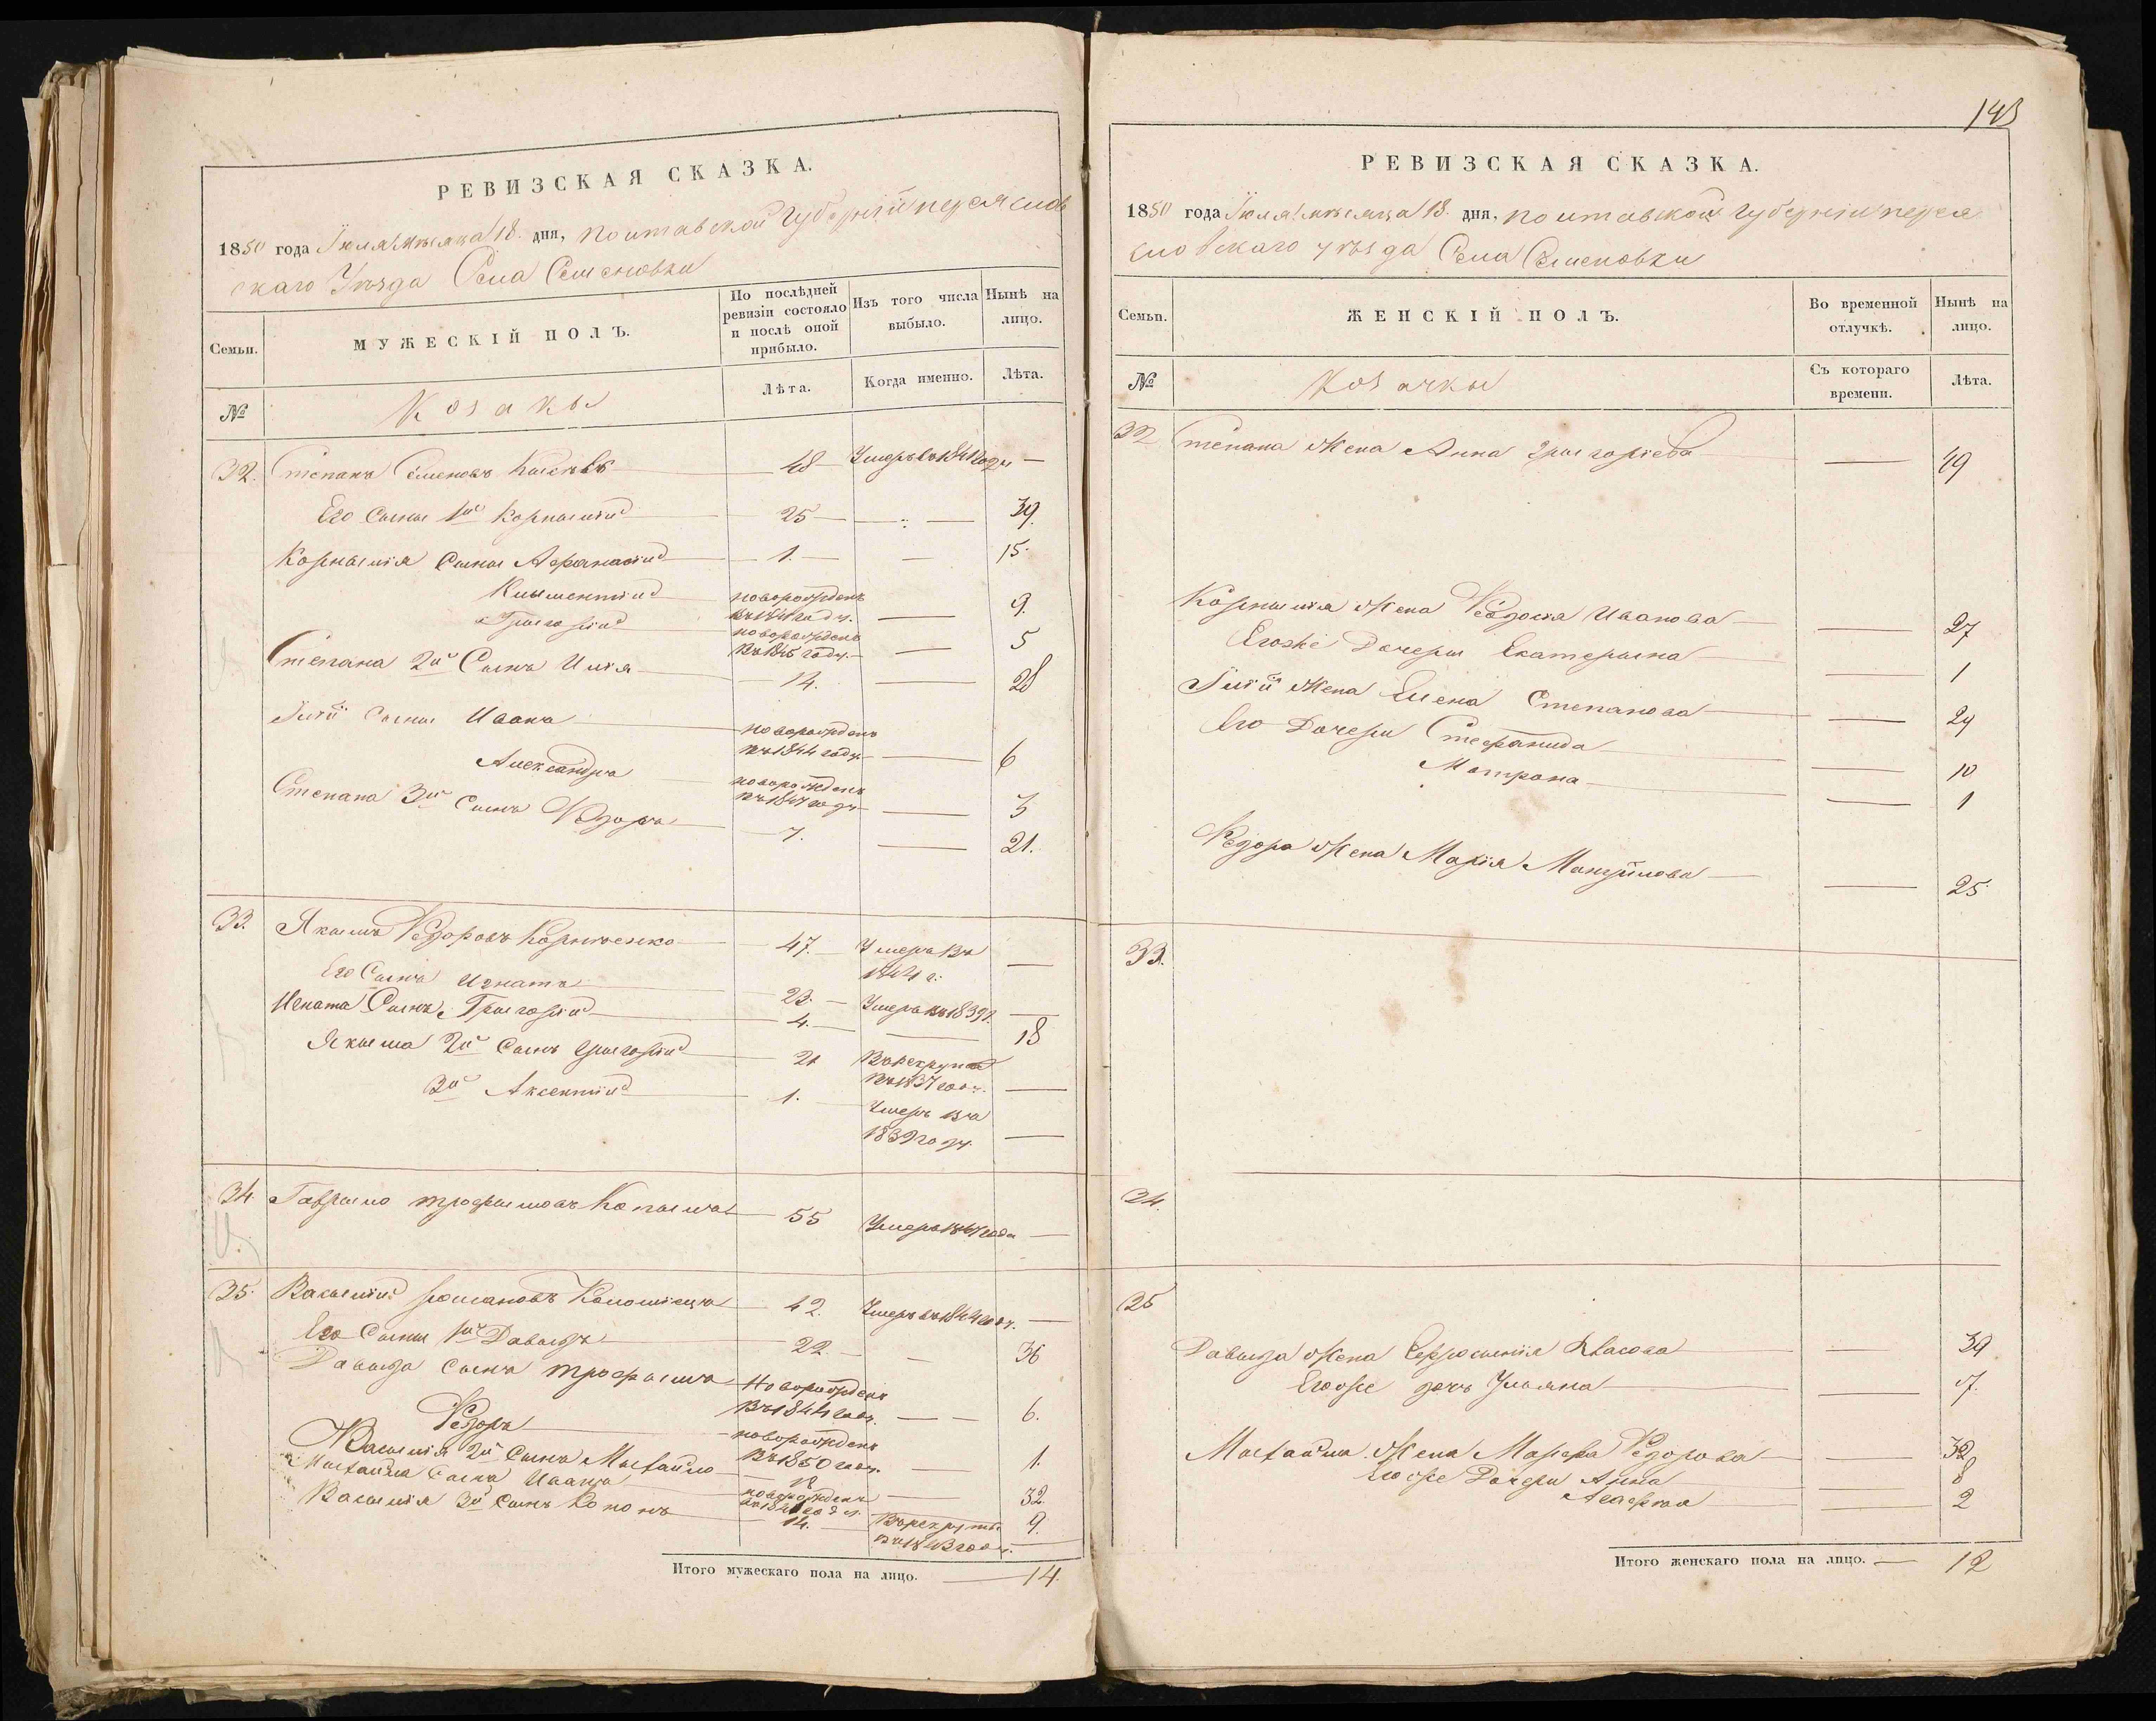 РЕВИЗСКАЯ СКАЗКА.
1850 года Іюля мѣсяца 18. дня, полтавской Губерніи переяслов
скаго Уѣзда Села Семеновки
Семьи.
МУЖЕСКІЙ ПОЛЪ.
По послѣдней ревизіи состояло и послѣ оной прибыло.
Изъ того числа выбыло.
Нынѣ на лицо.
№
Козакы
Лѣта.
Когда именно.
Лѣта.
32. Степанъ Семеновъ 48 Умеръ въ 1841 году —
Его Сыны 1й Корнылій 25 — 39.
Корнылія Сыны Афанасій 1. — 15.
Клыментій новорожденъ въ 1841 году. — 9.
Григорій новорожденъ въ 1845 году. — 5
Степана 2й Сынъ Илія 14. — 28
Іліи Сыны Иванъ новорожденъ въ 1844 году — 6
Александръ новорожденъ въ 1847 году — 3
Степана 3й Сынъ Ѳедоръ 7. — 21.
33. Якымъ Ѳедоровъ Корніенко 47. Умеръ въ 1844 г. —
Его Сынъ Игнатъ 23. Умеръ въ 1839 г. —
Игната Сынъ Григорій 4. — 18
Якыма 2й Сынъ Григорій 21 въ 1837 году. —
3й Аксентій 1. Умеръ въ 1839 году. —
34. Гаврыло трофымовъ 55 Умеръ —
35. Васылій романовъ Коломіецъ 42. Умеръ въ 1844 году. —
Его Сыны 1й Давыдъ 22. — 36
Давыда сынъ трофымъ Новорожденъ въ 1844 году. — 6.
Ѳедоръ новорожденъ въ 1850 году. — 1.
Васылія 2й Сынъ Мыхайло 18 — 32
Мыхайла Сынъ Иванъ новорожденъ въ 1841 году. 9.
Васылія 3й Сынъ Кононъ 14. Въ рекруты въ 1843 году. —
Итого мужескаго пола на лицо. — 14.
143
РЕВИЗСКАЯ СКАЗКА.
1850 года Іюля мѣсяца 18. дня, полтавской Губерніи перея
словскаго уѣзда Села Семеновки
Семьи.
ЖЕНСКІЙ ПОЛЪ.
Во временной отлучкѣ.
Нынѣ на лицо.
№
Козачкы
Съ котораго времени.
Лѣта.
32 Степана Жена Анна Григоріева — 49
Корнылія Жена Ѳедосія Иванова — 27
Егоже Дочеры Екатерына — 1
Іліи Жена Елена Степанова — 29
Его Дочери Стефанида — 10
Матрона — 1
Ѳедора Жена Марія Мануйлова — 25
33.
34.
35
Давыда Жена Ефросинія Власова — 39
Егоже дочь Ульяна — 7.
Мыхайла Жена Марфа Ѳедорова — 32
Егоже Дочери Анна — 8
Агафія — 2
Итого женскаго пола на лицо. — 12